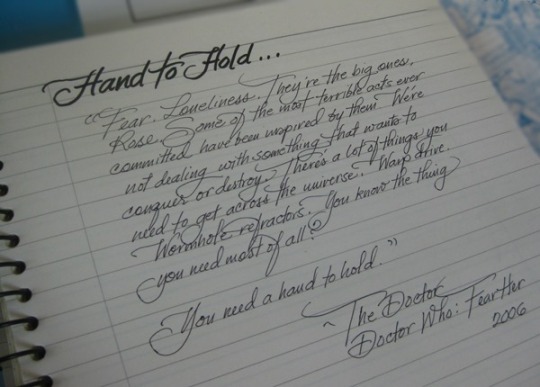 Hand to Hold...
"Fear. Loneliness. They're the big ones,
Rose. Some of the most terrible acts ever
committed have been inspired by them. We're
not dealing with something that wants to
conquer or destroy. There's a lot of things you
need to get across the universe. Warp drive.
Wormhole refractors. You know the thing
you need most of all?
You need a hand to hold."
~The Doctor
Doctor Who: Fear Her
2006